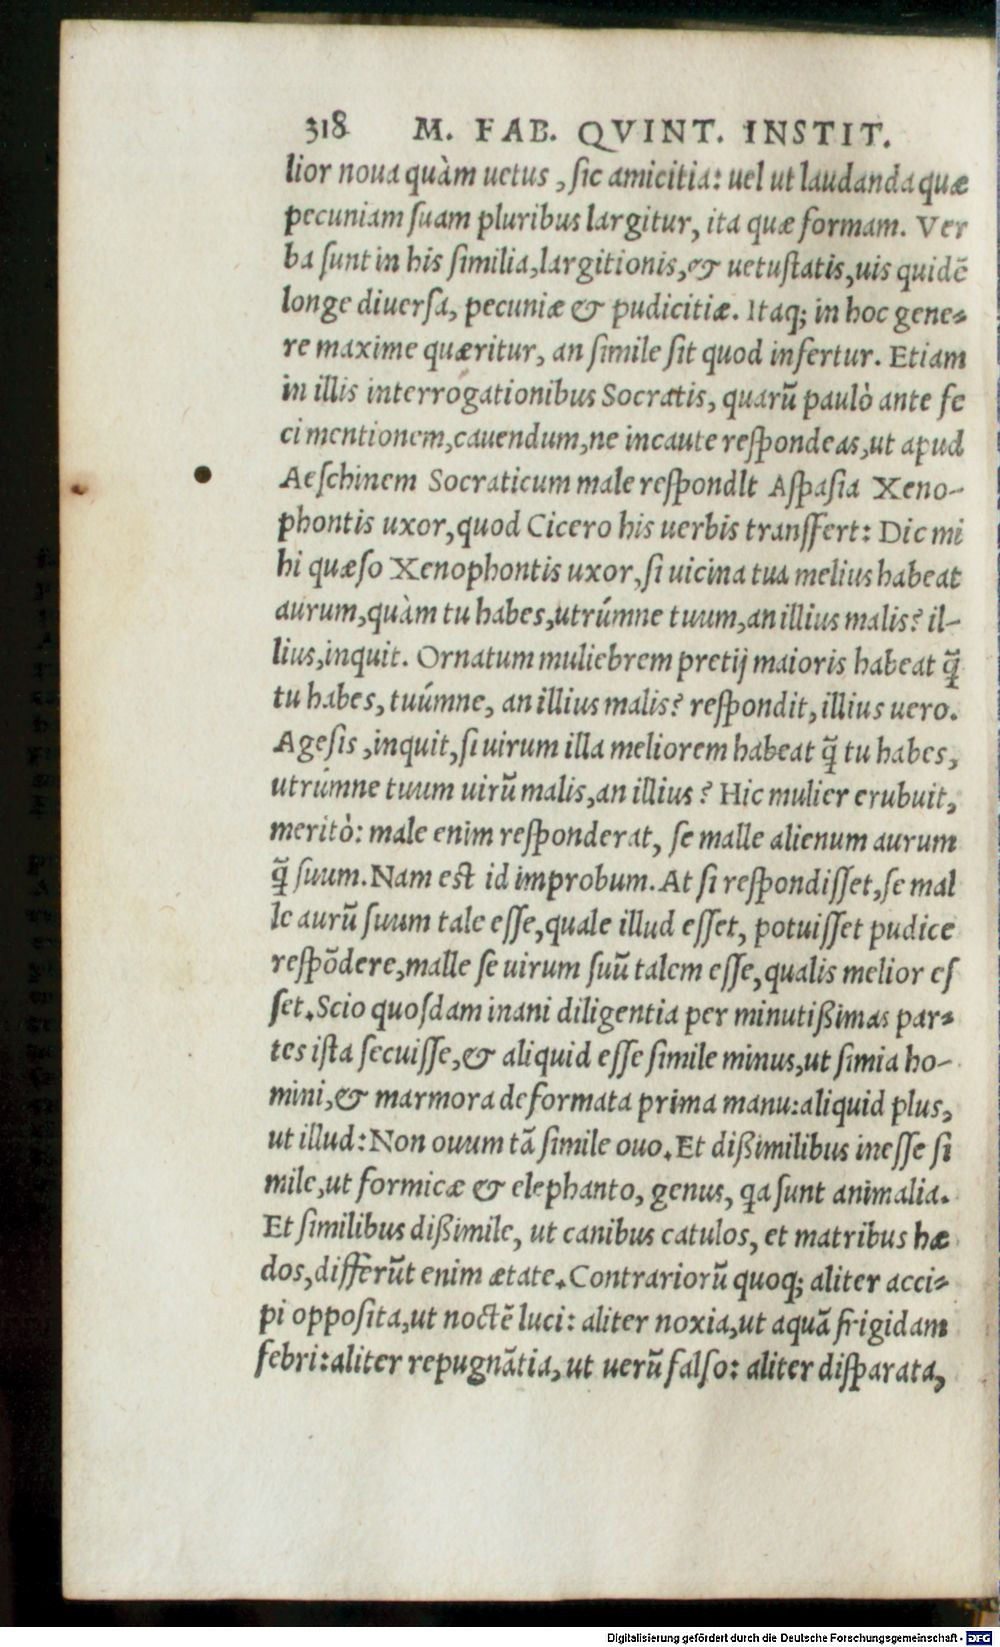 318 M. FAB. QVINT. INSTIT.
lior noua quàm uetus, sic amicitia: uel ut laudanda quæ
pecuniam suam pluribus largitur, ita quæ formam. Ver
ba sunt in his similia, largitionis, & uetustatis, uis quidẽ
longe diuersa, pecuniæ & pudicitiæ. Itaq; in hoc gene-
re maxime quæritur, an simile sit quod infertur. Etiam
in illis interrogationibus Socratis, quarũ paulò ante fe
ci mentionem, cauendum, ne incaute respondeas, ut apud
Aeschinem Socraticum male respondIt Aspasia Xeno-
phontis uxor, quod Cicero his uerbis transfert: Dic mi
hi quæso Xenophontis uxor, si uicina tua melius habeat
aurum, quàm tu habes, utrúmne tuum, an illius malis? il-
lius, inquit. Ornatum muliebrem pretij maioris habeat q̃
tu habes, tuúmne, an illius malis? respondit, illius uero.
Agesis, inquit, si uirum illa meliorem habeat q̃ tu habes,
utrúmne tuum uirũ malis, an illius? Hic mulier erubuit,
meritò: male enim responderat, se malle alienum aurum
q̃ suum. Nam est id improbum. At si respondisset, se mal
le aurũ suum tale esse, quale illud esset, potuisset pudice
respõdere, malle se uirum suũ talem esse, qualis melior es
set. Scio quosdam inani diligentia per minutißimas par-
tes ista secuisse, & aliquid esse simile minus, ut simia ho-
mini, & marmora deformata prima manu: aliquid plus,
ut illud: Non ouum tã simile ouo. Et dißimilibus inesse si
mile, ut formicæ & elephanto, genus, qa sunt animalia.
Et similibus dißimile, ut canibus catulos, et matribus hæ
dos, differũt enim ætate. Contrariorũ quoq; aliter acci-
pi opposita, ut noctẽ luci: aliter noxia, ut aquã frigidam
febri: aliter repugnãtia, ut uerũ falso: aliter disparata,
Digitalisierung gefördert durch die Deutsche Forschungsgemeinschaft - DFG